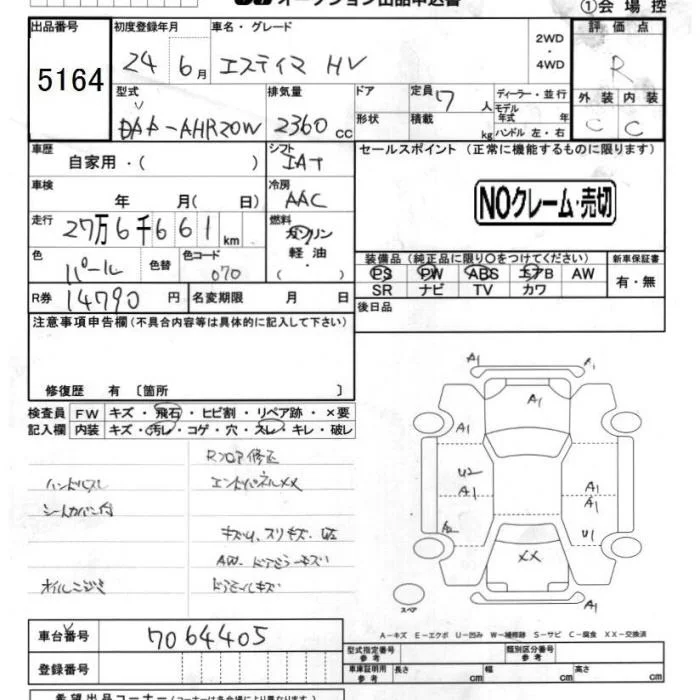 オークション出品申込書
①会場控
出品番号 初度登録年月 車名・グレード 2WD・4WD 評価点
5164 24年6月 エスティマ HV R
型式 排気量 ドア 定員 7人 ディーラー・並行 外装 内装
DAA-AHR20W 2360cc 形状 積載 kg モデル年式 年 ハンドル 左・右 C C
車歴 自家用・( ) シフト IAT セールスポイント (正常に機能するものに限ります)
車検 年 月( 日) 冷房 AAC NOクレーム・売切
走行 27万6千661km 燃料 ガソリン 軽油 ( )
色 パール 色替 色コード 070 装備品 (純正品に限り○をつけてください) 新車保証書
PS PW ABS エアB AW 有・無
SR ナビ TV カワ
R券 14790円 名変期限 月 日 後日品
注意事項申告欄(不具合内容等は具体的に記入して下さい)
修復歴 有 〔箇所 〕
検査員 FW キズ・飛石・ヒビ割・リペア跡・×要
記入欄 内装 キズ・汚レ・コゲ・穴・スレ・キレ・破レ
Rフロア修正
エンドパネルXX
シートカバー付
キズU、スリキズ
AW、ドアミラーキズ
オイルにじみ
A1 A1
A1
A1
U2
A1 A1
A1
A2 U1
XX
スペア
A-キズ E-エクボ U-凹み W-補修跡 S-サビ C-腐食 XX-交換済
車台番号 7064405
登録番号
型式指定番号 参考 類別区分番号 参考
車庫証明用 参考 長さ cm 幅 cm 高さ cm
希望出品コーナー(コーナーは各会場により異なります)